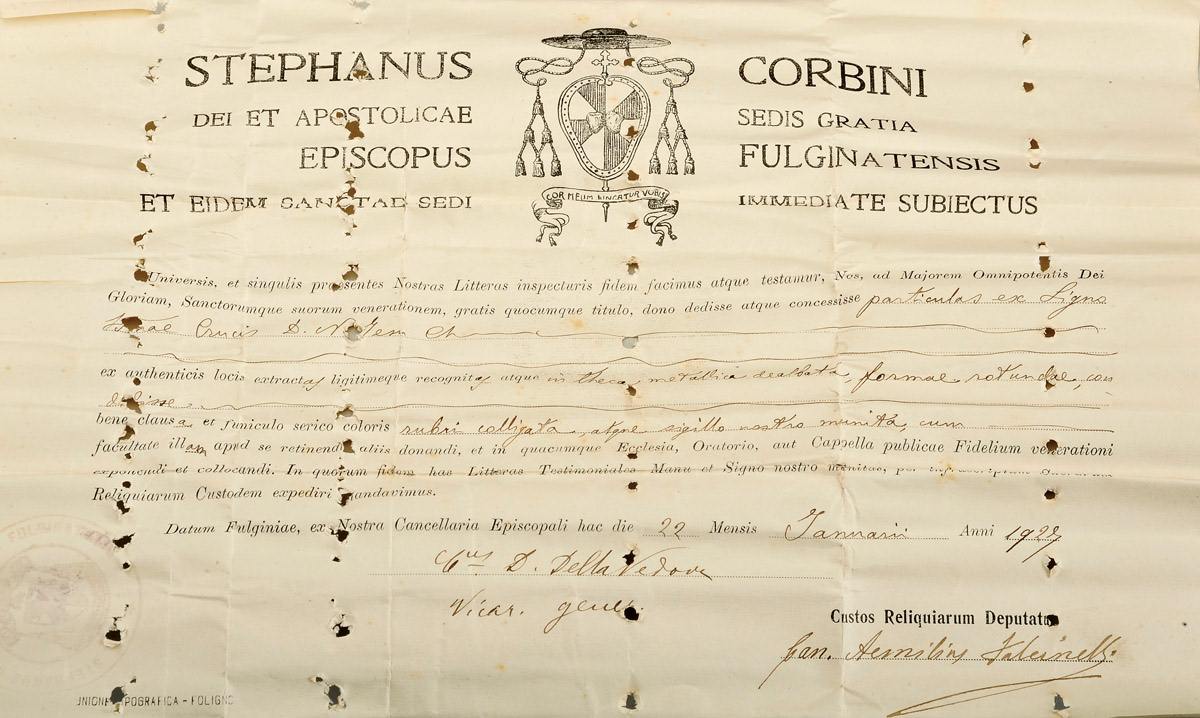 STEPHANUS CORBINI
DEI ET APOSTOLICAE SEDIS GRATIA
EPISCOPUS FULGINATENSIS
ET EIDEM SANCTAE SEDI IMMEDIATE SUBIECTUS
COR MEUM VOBIS
Universis, et singulis praesentes Nostras Litteras inspecturis fidem facimus atque testamur, Nos, ad Majorem Omnipotentis Dei
Gloriam, Sanctorumque suorum venerationem, gratis quocumque titulo, dono dedisse atque concessisse particulas ex Ligno
Crucis D. N. Jesu
ex authenticis locis extractas legitimeque recognitas atque in theca metallica dealbata, formae rotundae,
bene clausa et funiculo serico coloris rubri colligata, atque sigillo nostro munita, cum
facultate illam apud se retinendi aliis donandi, et in quacumque Ecclesia, Oratorio, aut Cappella publicae Fidelium venerationi
exponendi et collocandi. In quorum fidem has Litteras Testimoniales Manu et Signo nostro munitas,
Reliquiarum Custodem expediri mandavimus.
Datum Fulginiae, ex Nostra Cancellaria Episcopali hac die 22 Mensis Januarii Anni
D. Della Vedova
Vicar.
Custos Reliquiarum Deputatus
Can. Aemilius
UNIONE TIPOGRAFICA - FOLIGNO